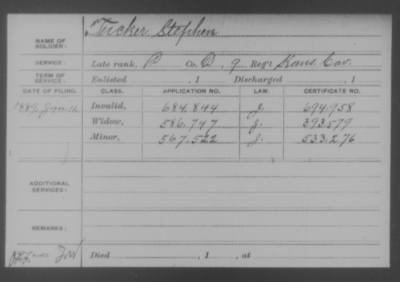 NAME OF SOLDIER: Tucker Stephen
SERVICE: Late rank, P Co. D, 9 Reg't Kans. Cav.
TERM OF SERVICE: Enlisted , 1 Discharged , 1
DATE OF FILING. CLASS. APPLICATION NO. LAW. CERTIFICATE NO.
Jan. Invalid, 684.844 J. 694.958
Widow, 586.747 J. 393.579
Minor, 567.522 J. 533.276
ADDITIONAL SERVICES:
REMARKS:
Died , 1 , at